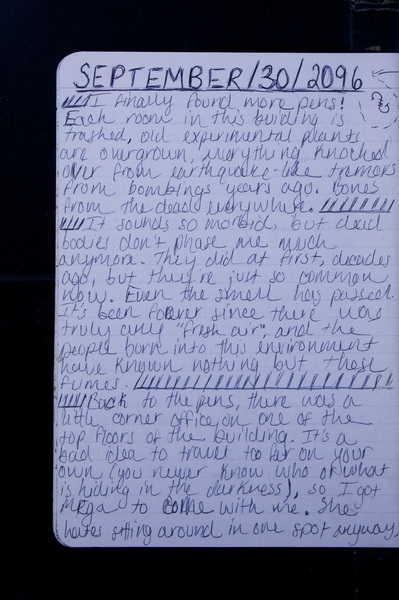 SEPTEMBER/30/2096
I finally found more pens!
Each room in this building is
trashed, old experimental plants
are overgrown, everything knocked
over from earthquake-like tremors
from bombings years ago. Bones
from the dead everywhere.
It sounds so morbid, but dead
bodies don't phase me much
anymore. They did at first, decades
ago, but they're just so common
now. Even the smell has passed.
It's been forever since there was
truly any "fresh air", and the
people born into this environment
have known nothing but these
fumes.
Back to the pens, there was a
little corner office on one of the
top floors of the building. It's a
bad idea to travel too far on your
own (you never know who or what
is hiding in the darkness), so I got
Mega to come with me. She
hates sitting around in one spot anyway,